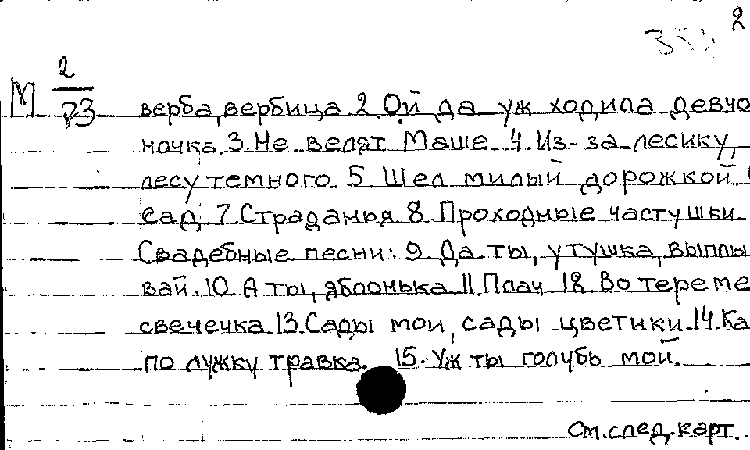 2
М 2/23
верба, вербица. 2. Ой да уж ходила девчо
ночка. 3. Не велят Маше. 4. Из-за лесику,
лесу темного. 5. Шел милый дорожкой
сад. 7. Страданья 8. Проходные частушки.
Свадебные песни: 9. Да ты, утушка, выплы
вай. 10. А ты, яблонька 11. Плач 12. Во тереме
свечечка. 13. Сады мои, сады цветики. 14. Ка
по лужку травка. 15. Уж ты голубь мой.
См. след. карт.